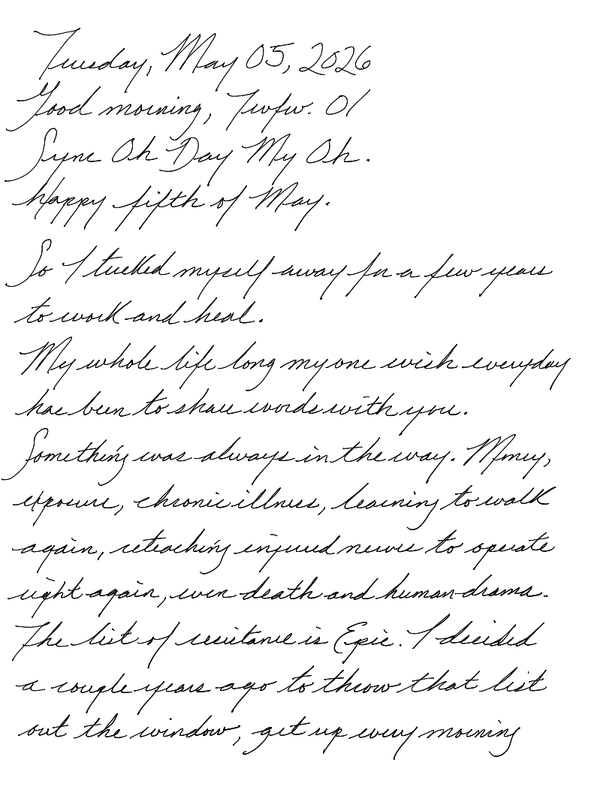 Tuesday, May 05, 2026
Good morning, Twfw. 01
Sync Oh Day My Oh.
Happy fifth of May.
So I tucked myself away for a few years
to work and heal.
My whole life long my one wish everyday
has been to share words with you.
Something was always in the way. Money,
exposure, chronic illness, learning to walk
again, reteaching injured nerves to operate
right again, even death and human drama.
The list of resistance is Epic. I decided
a couple years ago to throw that list
out the window, get up every morning